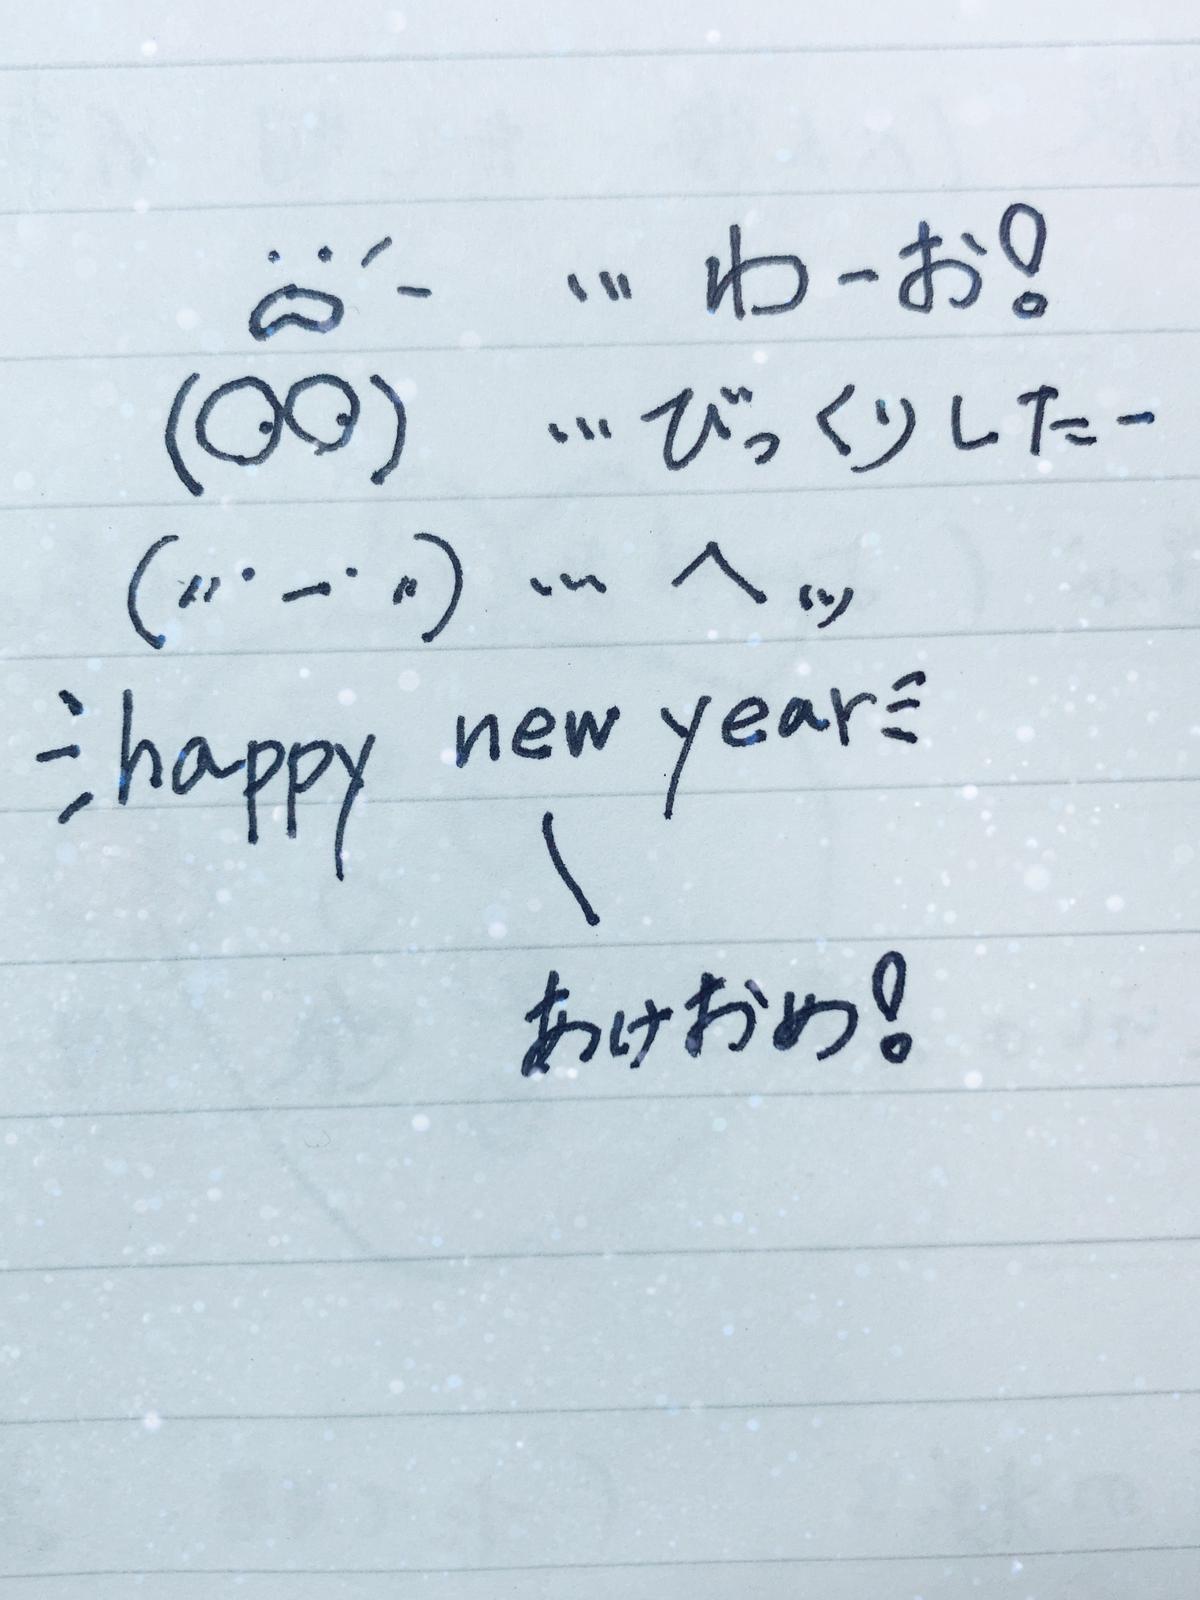 … わーお!
… びっくりしたー
(〃・ー・〃) … へッ
happy new year
あけおめ!